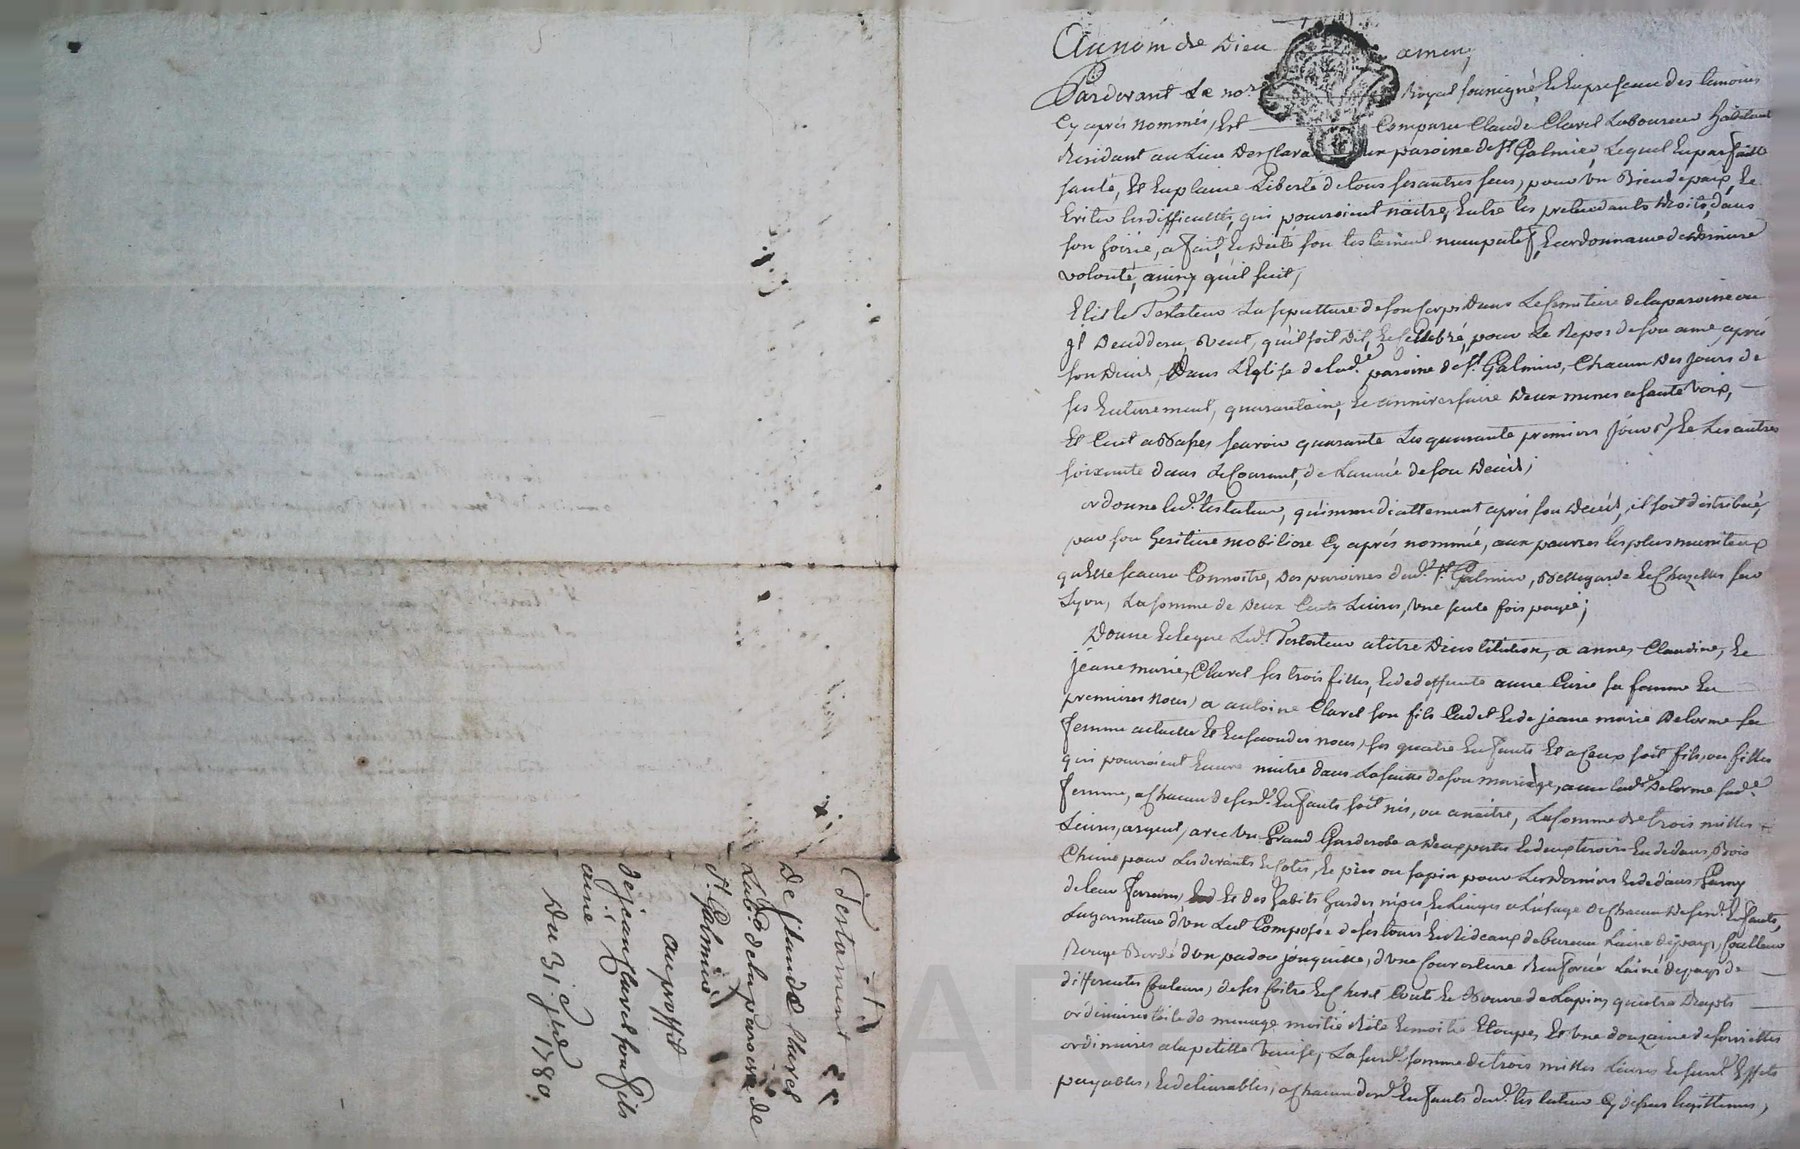 Au nom de Dieu amen,
Pardevant Le no.re Royal soussigné, Et En presence des temoins
Cy après nommés, Est Comparu Claude Clavel Laboureur habitant
Residant au Lieu paroisse de St. Galmier, Lequel En parfaite
santé, Et En plaine Liberté de tous ses autres sens, pour un Bien de paix, Et
Eviter les difficultés, qui pouroient naitre, Entre les pretendants Droits, dans
son hoirie, a fait, Et Dicté son testament nuncupatif, Et ordonnance de derniere
volonté, ainsy qu'il suit,
Elit le Testateur La sepulture de son Corps Dans Le Cimetiere de la paroisse ou
il Decedera, Veut, qu'il soit Dit, Et Cellebré, pour Le Repos de son ame, après
son Decès, Dans L'Eglise de lad.e paroisse de St. Galmier, Chacun Des jours de
ses Enterrement, quarantaine, Et anniversaire Deux messes a haute voix,
Et Cent a Basses scavoir quarante Les quarante premiers jours, Et Les autres
soixante dans Le Courant, de L'année de son Decès;
ordonne led.t testateur, qu'immediattement après son Decès, il soit distribué,
par son heritiere mobiliere Cy après nommée, aux pauvres les plus
qu'Elle scaura Connoitre, Des paroisses dud.t St. Galmier, Bellegarde Et Chazelles sur
Lyon, La somme de Deux Cents Livres, une seule fois payée;
Donne Et Legue Led.t Testateur a titre D'institution, a anne, Claudine, Et
jeane marie Clavel ses trois filles, Et de deffunte anne sa femme En
premieres noces, a antoine Clavel son fils Cadet Et de jeane marie Delorme sa
femme actuelle Et En secondes noces, ses quatre Enfants Et a Ceux soit fils, ou filles
qui pouroient Encore naitre dans La suitte de son mariage, avec lad.e Delorme sad.e
femme, a Chacun de sesd.ts Enfants soit nés, ou a naitre, La somme de trois milles
Livres, argent, avec Un Grand Garderobe a Deux portes Et deux tiroirs En dedans, Bois
Chêne pour Les devants Et Cotés, Et pin ou sapin pour Les Derriers Et dedans, Garny
de leur ferrure, Et des habits hardes nipes, Et Linges a L'usage de Chacun De sesd.ts Enfants,
La garniture d'Un Lit Composée de ses tours Et Rideaux de bureau Laine du pays, Couleur
Rouge Bordé d'Un padou jonquille, d'Une Couverture Renforcée Laine du pays de
differentes Couleurs, de ses Coitre Et Chevet Couti Et Bourre de Lapin, quatre Draps
ordinaires toile de menage moitié Rite Et moitié Etoupes, Et Une douzaine de serviettes
ordinaires a la petitte Venise, La susd.e somme de trois milles Livres Et susd.ts Effets
payables, Et delivrables, a Chacun desd.ts Enfants dud.t testateur Cy dessus Legittimés,
Testament
De Claude Clavel
Lab.r de la paroisse de
St. Galmier
au proffit
de jean Clavel son fils
ainé
Du 31e 1780